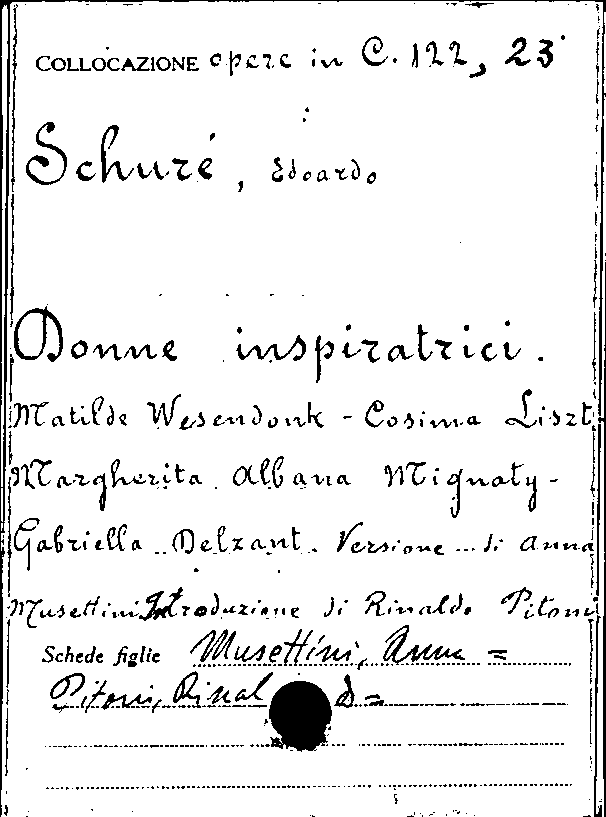 COLLOCAZIONE opere in C. 122, 23
Schuré, Edoardo
Donne inspiratrici.
Matilde Wesendonk - Cosima Liszt.
Margherita Albana Mignaty -
Gabriella Delzant. Versione di Anna
Musettini Introduzione di Rinaldo Pitoni
Schede figlie Musettini, Anna =
Pitoni, Rinal d =